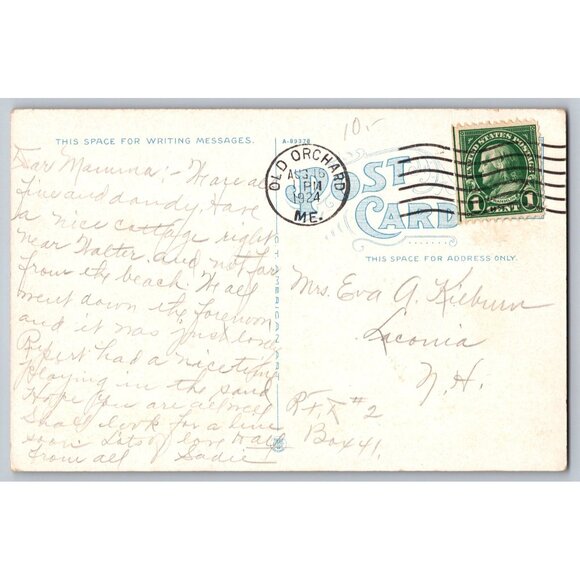 THIS SPACE FOR WRITING MESSAGES.
A-89376
10.-
OLD ORCHARD
AUG 15
1 PM
1924
ME.
UNITED STATES POSTAGE
1 CENT 1
POST
CARD
THIS SPACE FOR ADDRESS ONLY.
Dear Mamma:- We are all
fine and dandy, have
a nice cottage right
near Walter and not far
from the beach. We all
went down this forenoon
and it was just lovely
Rupert had a nice time
playing in the sand
Hope you are all well
Shall look for a line
soon. Lots of love to all
from all Sadie
Mrs. Eva A. Kilburn
Laconia
N.H.
R.F.D. #2
Box 41.